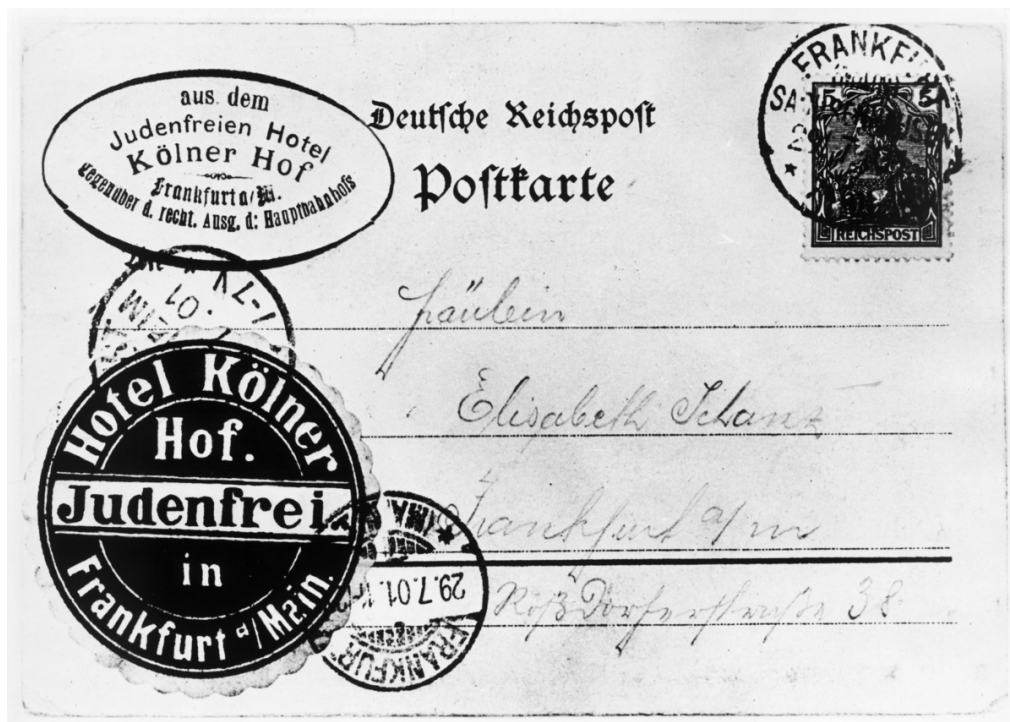 aus dem
Judenfreien Hotel
Kölner Hof
Frankfurt a/M.
gegenüber d. recht. Ausg. d: Hauptbahnhofs
Deutsche Reichspost
Postkarte
FRANKFU
5 5
REICHSPOST
Fräulein
Elisabeth Schanz
Frankfurt a/m
Roßdorferstraße 38
Hotel Kölner
Hof.
Judenfrei
in
Frankfurt a/Main.
29.7.01.
FRANKFUR